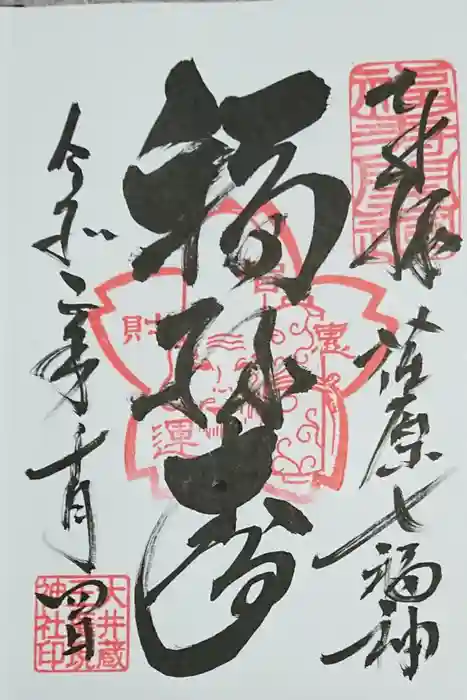 奉拝 荏原七福神
福禄寿
令和二年十月四日
財
運
大井蔵
王権現
神社印